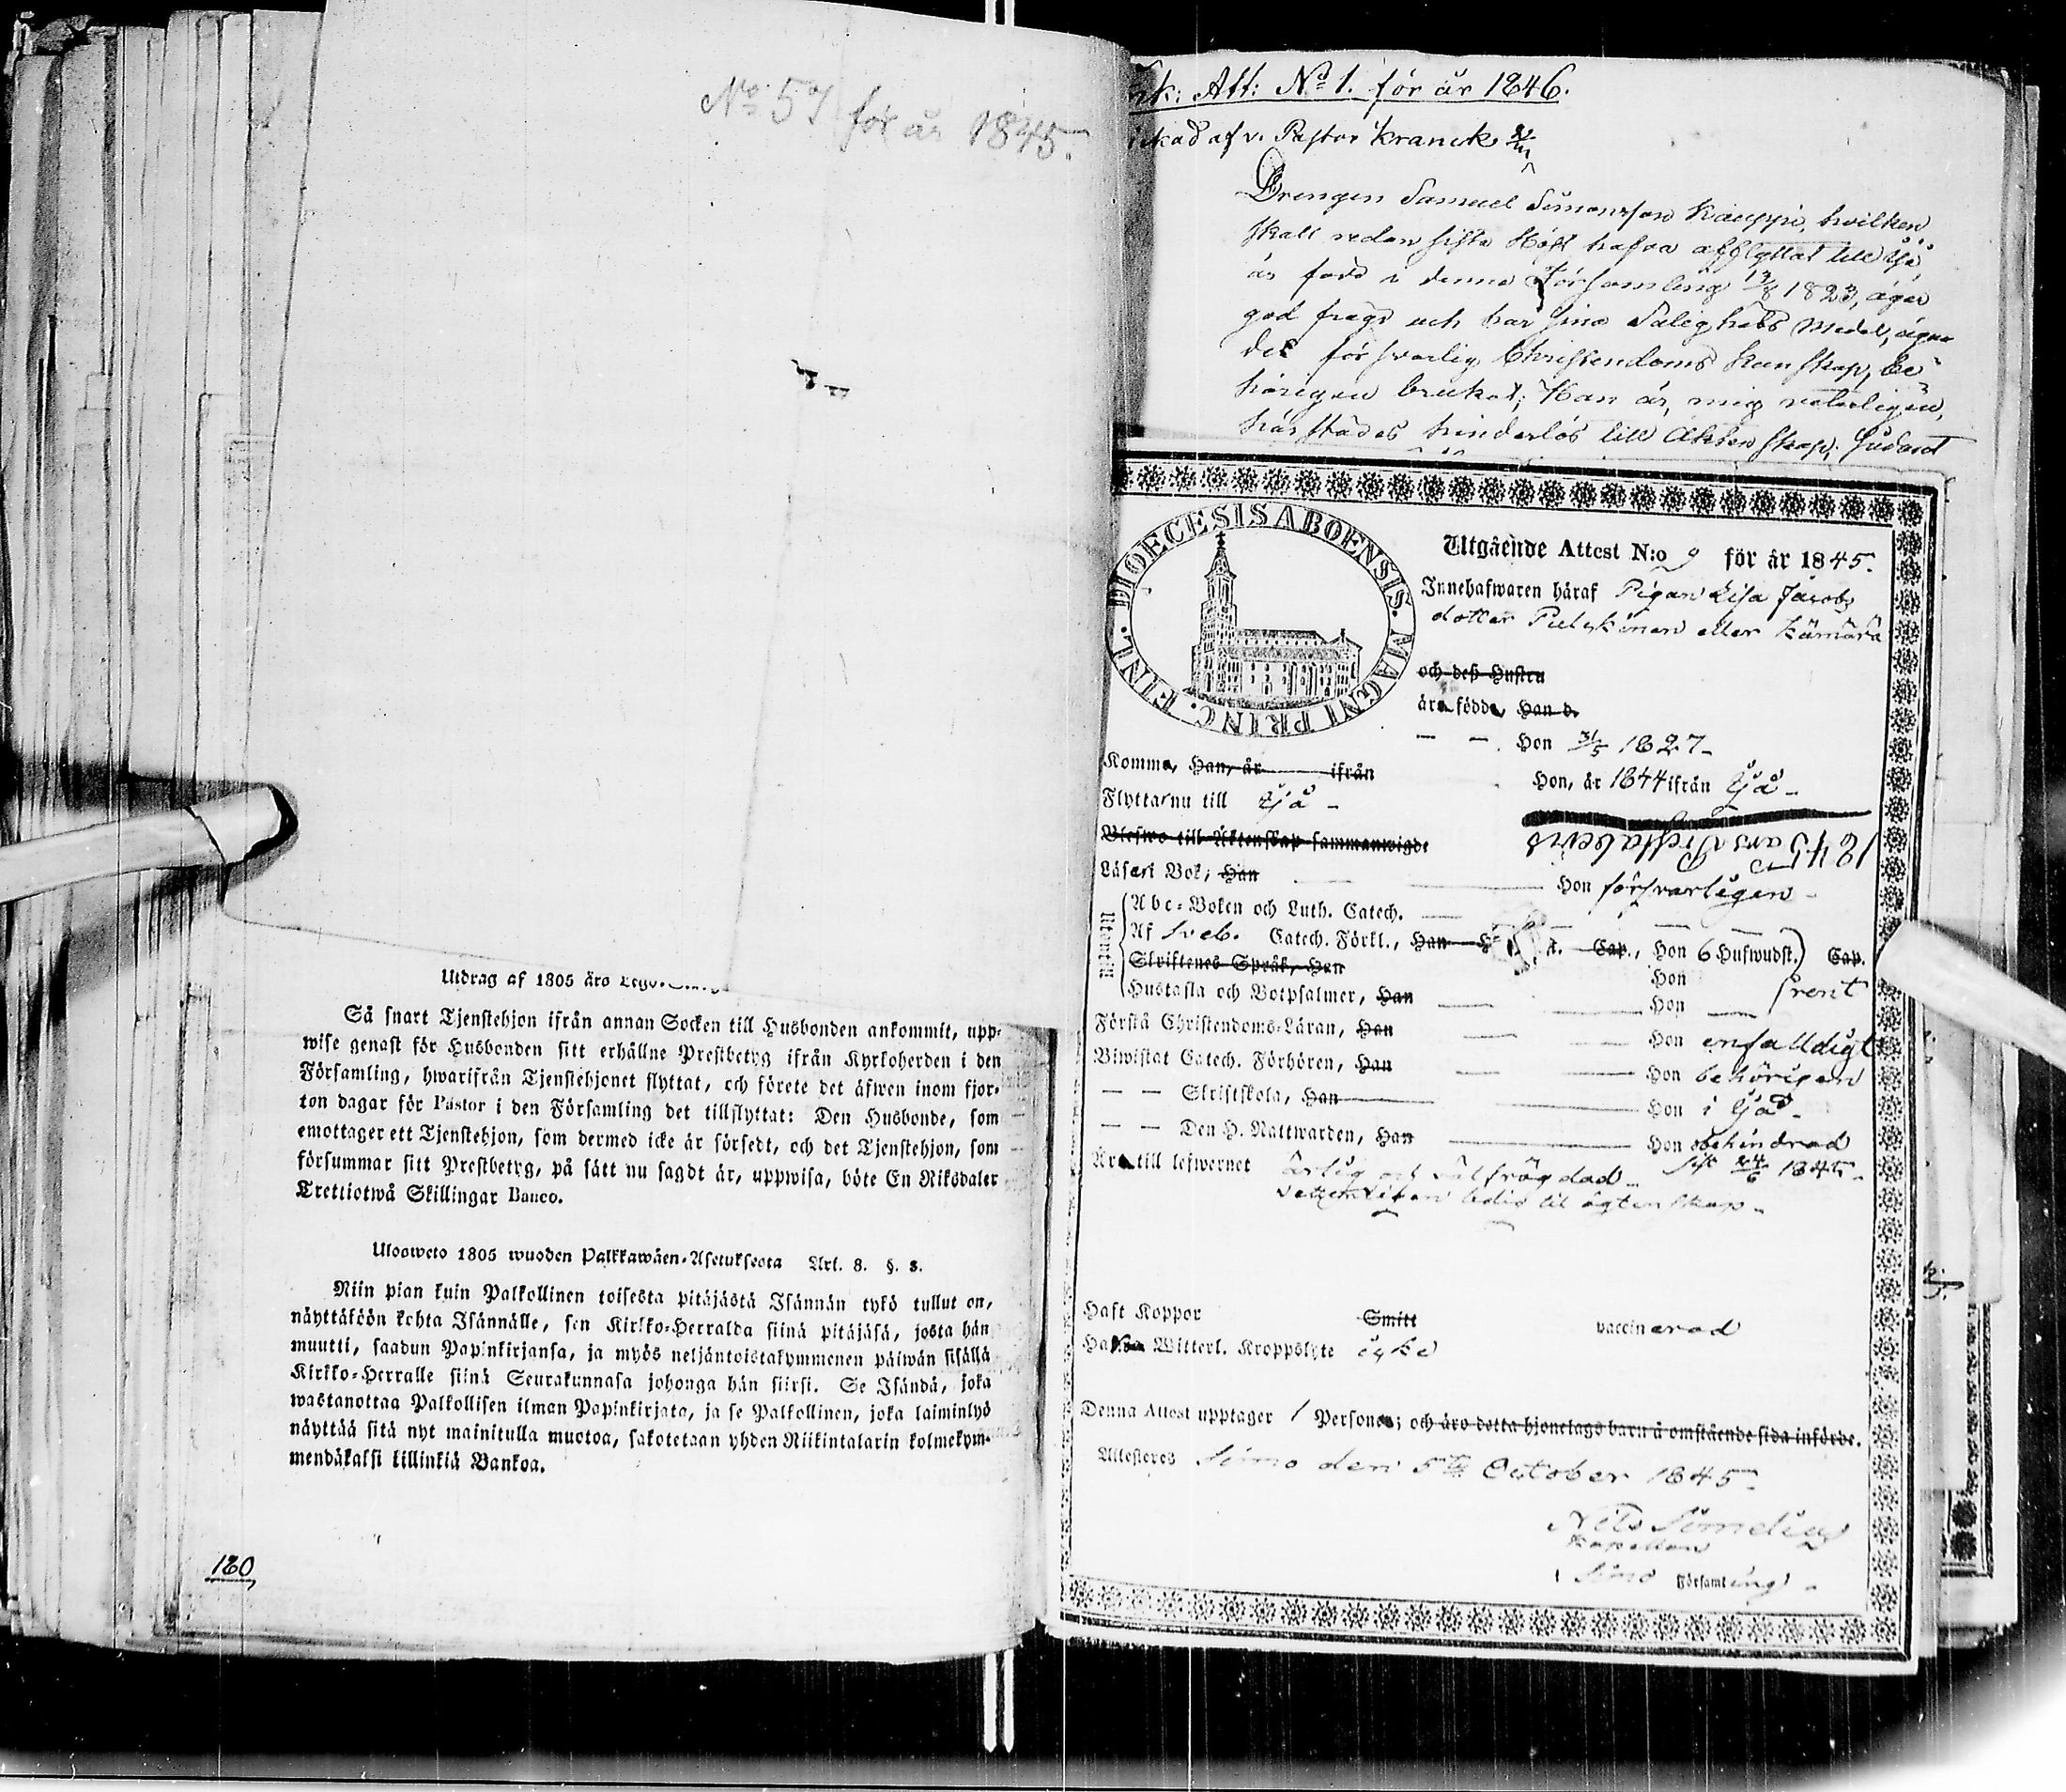 No 57 för år 1845.
Utdrag af 1805 års
Så snart Tjenstehjon ifrån annan Socken till Husbonden ankommit, upp-
wise genast för Husbonden sitt erhållne Prestbetyg ifrån Kyrkoherden i den
Församling, hwarifrån Tjenstehjonet flyttat, och förete det äfwen inom fjor-
ton dagar för Pastor i den Församling det tillflyttat: Den Husbonde, som
emottager ett Tjenstehjon, som dermed icke är försedt, och det Tjenstehjon, som
försummar sitt Prestbetyg, på sätt nu sagdt är, uppwisa, böte En Riksdaler
Trettiotwå Skillingar Banco.
Ulosweto 1805 wuoden Palkkawäen-Asetuksesta Art. 8. §. 3.
Niin pian kuin Palkollinen toisesta pitäjästä Isännän tykö tullut on,
näyttäköön kohta Isännälle, sen Kirkko-Herralda siinä pitäjäsä, josta hän
muutti, saadun Papinkirjansa, ja myös neljäntoistakymmenen päiwän sisällä
Kirkko-Herralle siinä Seurakunnasa johonga hän siirsi. Se Isändä, joka
wastanottaa Palkollisen ilman Papinkirjata, ja se Palkollinen, joka laiminlyö
näyttää sitä nyt mainitulla muotoa, sakotetaan yhden Riikintalarin kolmekym-
mendäkaksi killinkiä Bankoa.
180
Att: No 1. för år 1846.
af v. Pastor Kranck
Drengen Samuel Simonsson Kauppi, hvilken
skall redan sista Höst hafva afflyttat till Ijå
är född i denna Församling 1823, äger
god frägd och har sina Salighets Medel,
det försvarlig Christendoms kunskap, be-
hörigen brukat; Han är, mig veterligen,
härstädes hinderlös till Äktenskap;
DIOECESIS ABOENSIS. MAGNI PRINC. FINL.
Utgående Attest N:o 9 för år 1845.
Innehafwaren häraf Pigan Lisa Jacobs
dotter eller Kämärä
och deß Hustru
äro födde, Han d.
— — Hon 31/5 1827-
Komme, Han, år ifrån Hon, år 1844 ifrån Ijå -
Flyttar nu till Ijå -
Blefwo till Äktenskap sammanwigde
1845 års Prestabevis
Läser i Bok, Han Hon försvarligen -
Utantill
Abc-Boken och Luth. Catech.
Af Sveb. Catech. Förkl., Han Cap., Hon 6 Hufwudst. Cap.
Skriftenes Språk, Han Hon
Hustafla och Botpsalmer, Han Hon
Förstå Christendoms-Läran, Han Hon enfalldigt
Biwistat Catech. Förhören, Han Hon behörigen
— — Skriftskola, Han Hon i Ijå -
— — Den H. Nattwarden, Han Hon obehindrad
sist 24/6 1845 -
Äro till lefwernet ärlig och välfrägdad -
vetterligen ledig til ägtenskap -
Haft Koppor Smitt vaccinerad
Hafwa Witterl. Kroppslyte icke
Denna Attest upptager 1 Personer; och äro detta hjonelags barn å omstående sida införde.
Attesteres Simo den 5te October 1845 -
Nils
Kapellan
i Simo Församling -